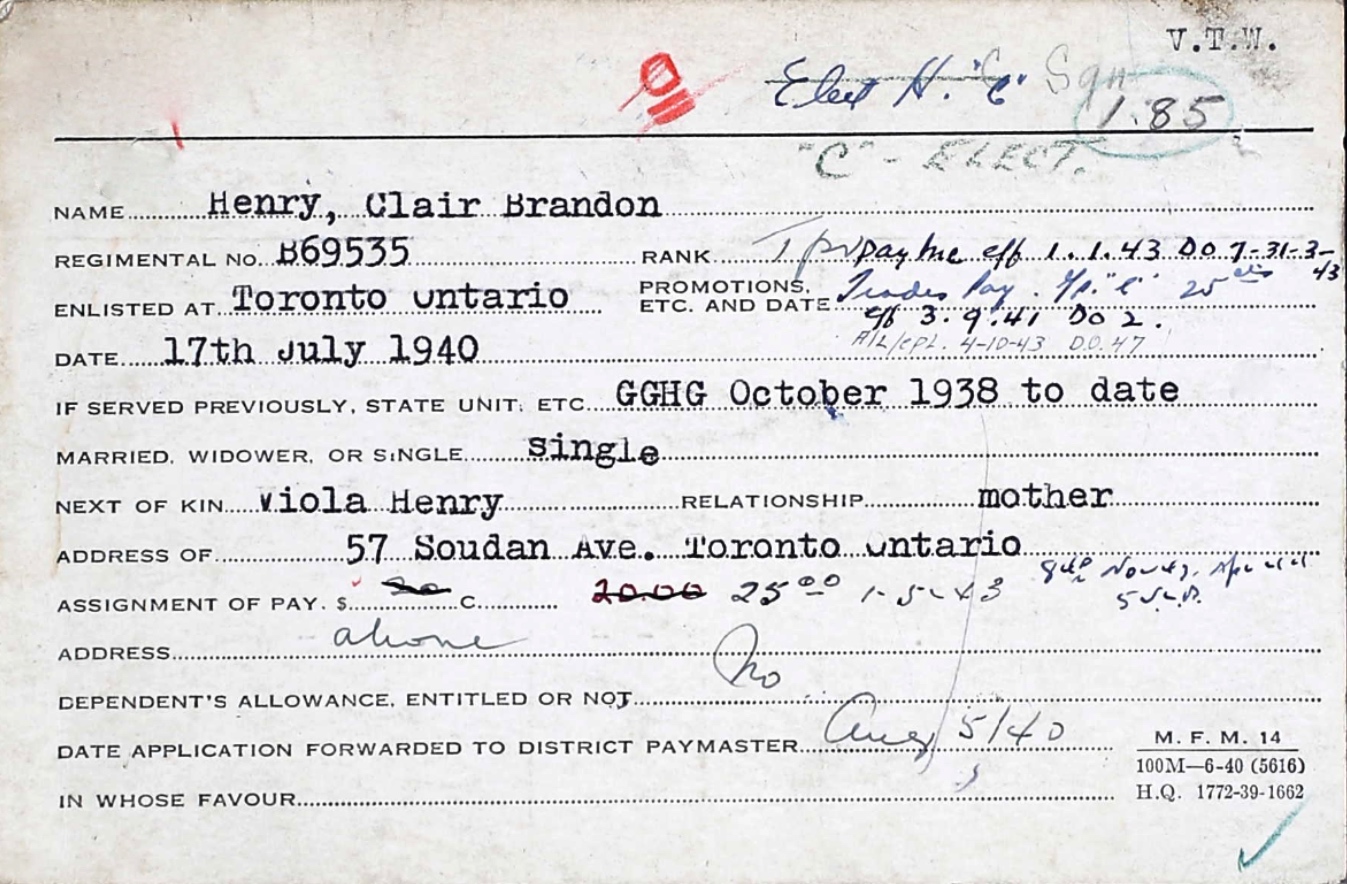 V.T.W.
Elect H. "C" Sqn
1.85
"C" - ELECT.
NAME Henry, Clair Brandon
REGIMENTAL No. B69535 RANK Tpr pay inc eff 1.1.43 DO 7-31-3-43
ENLISTED AT Toronto Ontario PROMOTIONS, ETC. AND DATE Trades Pay. Gp. "C" 25 cts
eff 3.9.41 DO 2.
DATE 17th July 1940 A/L/Cpl. 4-10-43 D.O.47
IF SERVED PREVIOUSLY, STATE UNIT, ETC. GGHG October 1938 to date
MARRIED, WIDOWER, OR SINGLE Single
NEXT OF KIN Viola Henry RELATIONSHIP mother
ADDRESS OF 57 Soudan Ave. Toronto Ontario
ASSIGNMENT OF PAY. $ 20 C. 20.00 25 00 1-5-43
ADDRESS above
DEPENDENT'S ALLOWANCE, ENTITLED OR NOT No
DATE APPLICATION FORWARDED TO DISTRICT PAYMASTER Aug 5/40
IN WHOSE FAVOUR
M. F. M. 14
100M—6-40 (5616)
H.Q. 1772-39-1662